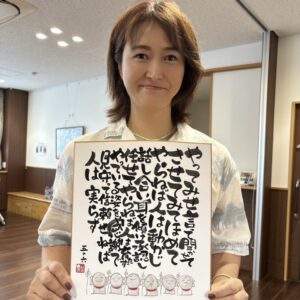 やってみせ言って聞かせて
させてみてほめて
やらねば人は動じ
話し合い耳を傾け承認し
任せてやらねば
やっている姿を感謝で
見守って信頼せねば
人は実らず
五十六